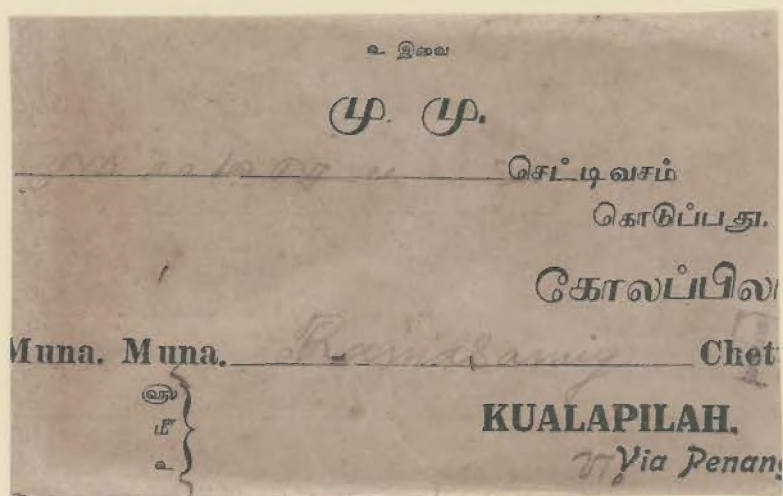 உ இவை
மு. மு.
செட்டிவசம்
கொடுப்பது.
கோலப்பில
Muna. Muna. Ramasamy Chet
ஸ்ரீ
மீ
உ
KUALAPILAH.
Via Penang